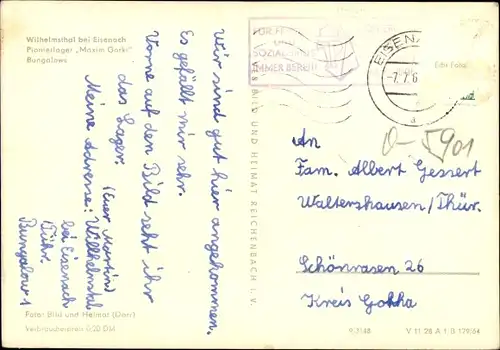 Wilhelmsthal bei Eisenach
Pionierlager „Maxim Gorki"
Bungalows
Wir sind gut hier angekommen.
Es gefällt mir sehr.
Vorne auf den Bild seht ihr
das Lager.
(Euer Martin)
Meine Adresse: Wilhelmstal
bei Eisenach
Thür.
Bungalow 1
Foto: Bild und Heimat (Darr)
Verbraucherpreis 0,20 DM
BILD UND HEIMAT REICHENBACH I. V.
FÜR FRIEDEN
UND
SOZIALISMUS
IMMER BEREIT
EISENACH
-7.7.6
Echt Foto
0-5901
An
Fam. Albert Gessert
Waltershausen/Thür.
Schönrasen 26
Kreis Gotha
9 3148
V 11 28 A 1 B 179/64